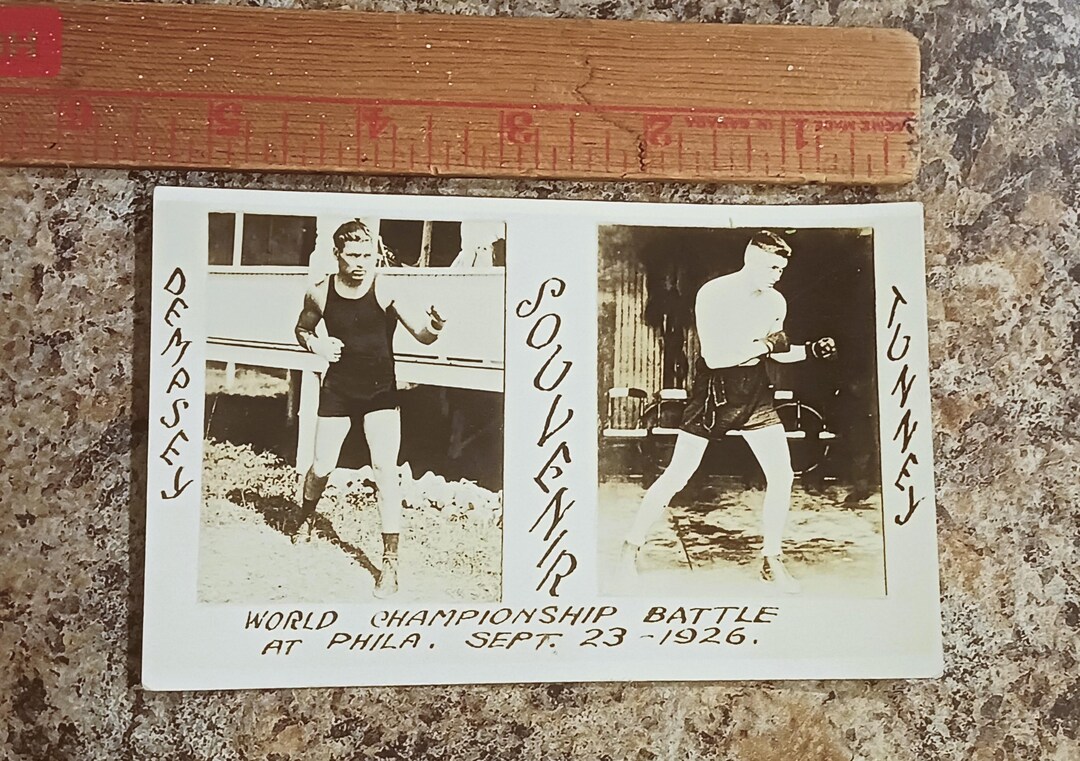 6 5 4 3 2 1
DEMPSEY
SOUVENIR
TUNNEY
WORLD CHAMPIONSHIP BATTLE
AT PHILA. SEPT. 23-1926.